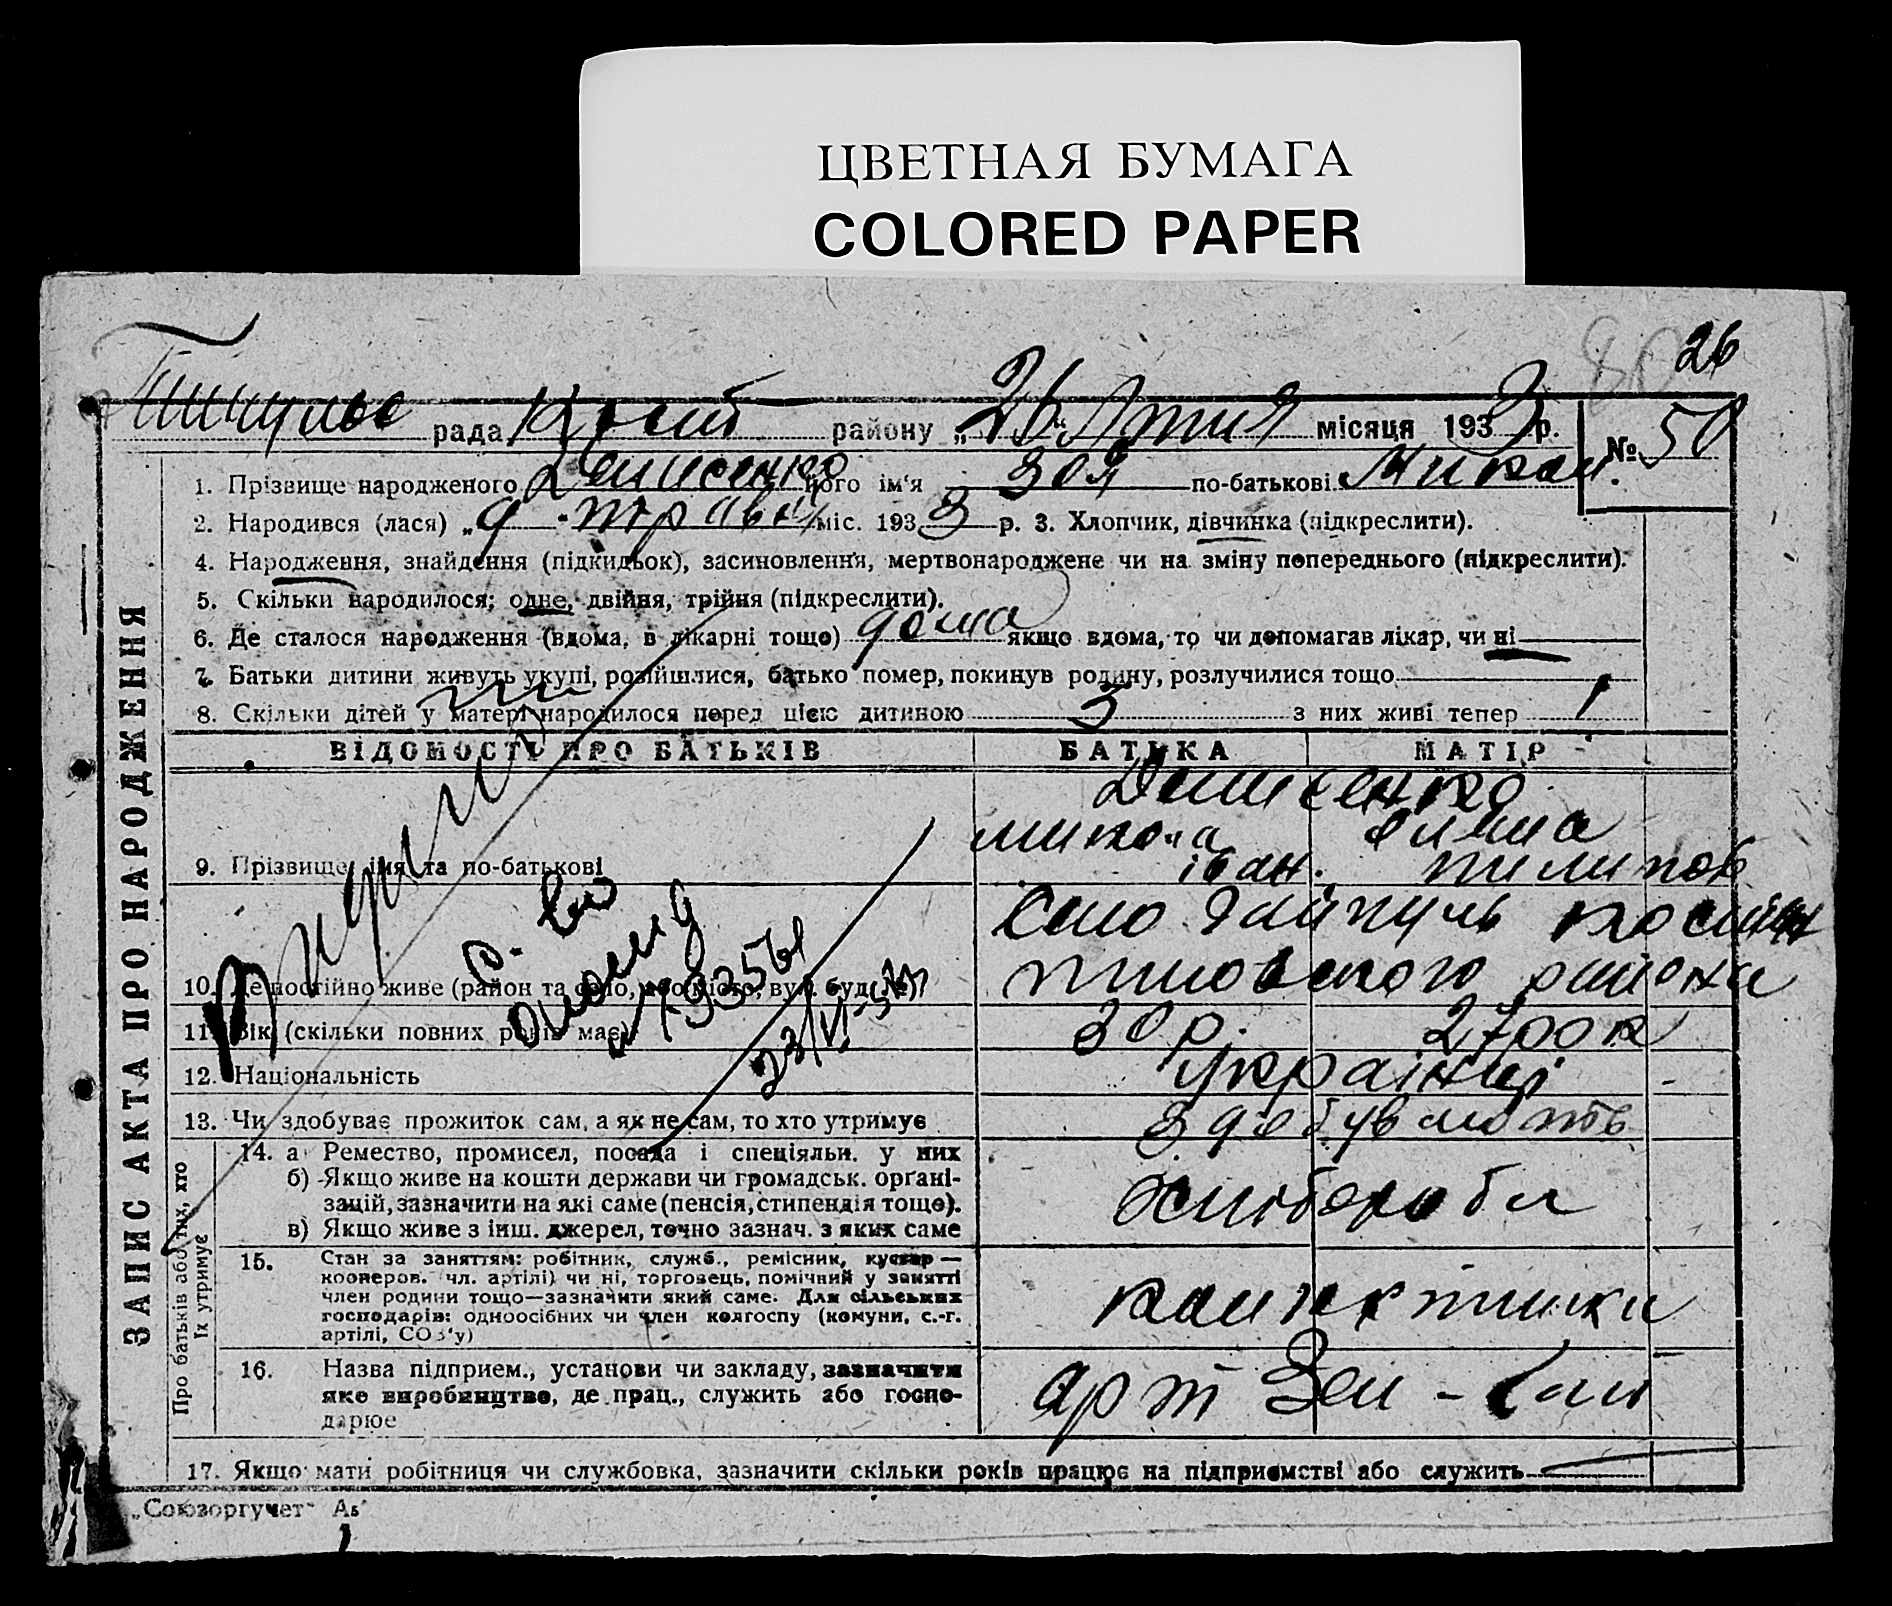 ЦВЕТНАЯ БУМАГА
COLORED PAPER
26
80
рада району „26“ місяця 1933 р. № 50
1. Прізвище народженого Денисенко його ім'я Зоя по-батькові Микол.
2. Народився (лася) „9 травня міс. 1933 р. 3. Хлопчик, дівчинка (підкреслити).
4. Народження, знайдення (підкидьок), засиновлення, мертвонароджене чи на зміну попереднього (підкреслити).
5. Скільки народилося; одне, двійня, трійня (підкреслити).
6. Де сталося народження (вдома, в лікарні тощо) дома якщо вдома, то чи допомагав лікар, чи ні
7. Батьки дитини живуть укупі, розійшлися, батько помер, покинув родину, розлучилися тощо
8. Скільки дітей у матері народилося перед цією дитиною 3 з них живі тепер 1
ВІДОМОСТЬ ПРО БАТЬКІВ БАТЬКА МАТІР
Денисенко
микола
9. Прізвище, імя та по-батькові іван. пилипов
село
10. Де постійно живе (район та село, або місто, вул. буд. №) района
11. Вік (скільки повних років має) 30 р. 27 рок
12. Національність українці
13. Чи здобуває прожиток сам, а як не сам, то хто утримує здобувають
14. а) Ремество, промисел, посада і спеціяльн. у них
б) Якщо живе на кошти держави чи громадськ. органі-
зацій, зазначити на які саме (пенсія, стипендія тощо).
хлібороби
в) Якщо живе з інш. джерел, точно зазнач. з яких саме
15. Стан за заняттям: робітник, служб., ремісник, кустар—
кооперов. чл. артілі) чи ні, торговець, помічний у занятті
член родини тощо—зазначити який саме. Для сільських
господарів: одноосібних чи член колгоспу (комуни, с.-г.
артілі, СОЗ'у)
16. Назва підприєм., установи чи закладу, зазначити
яке виробництво, де прац., служить або госпо-
дарює
арт
17. Якщо мати робітниця чи службовка, зазначити скільки років працює на підприємстві або служить
ЗАПИС АКТА ПРО НАРОДЖЕННЯ
Про батьків або тих, хто
їх утримує
23/VI-57
„Союзоргучет“